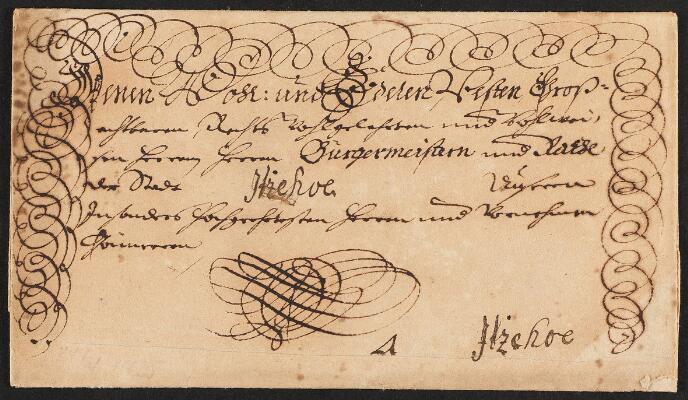 Denen Wohl: und Edelen, Vesten Groß=
achtbaren, Rechts Wohlgelahrten und Wohlwei,
sen Herren Herren Bürgermeistern und Rathe
der Stadt Itzehoe
Insonders Hochgeehrtesten Herren und Vornehmen
Gönneren
Itzehoe